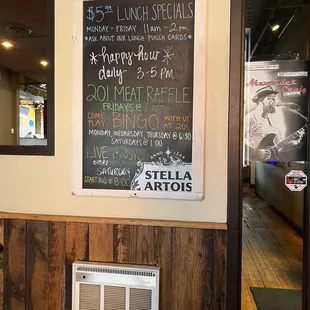 $5 LUNCH SPECIALS
MONDAY - FRIDAY 11am - 2pm
*ASK ABOUT OUR LUNCH PUNCH CARDS*
*happy hour*
daily 3-5pm
201 MEAT RAFFLE
FRIDAYS @
COME PLAY BINGO WITH US AT 201!
MONDAY, WEDNESDAY, THURSDAY @ 6:30
SATURDAY @ 1:00
LIVE MUSIC
EVERY
SATURDAY
STARTING @ 8:00
STELLA
ARTOIS
Alexander Craig